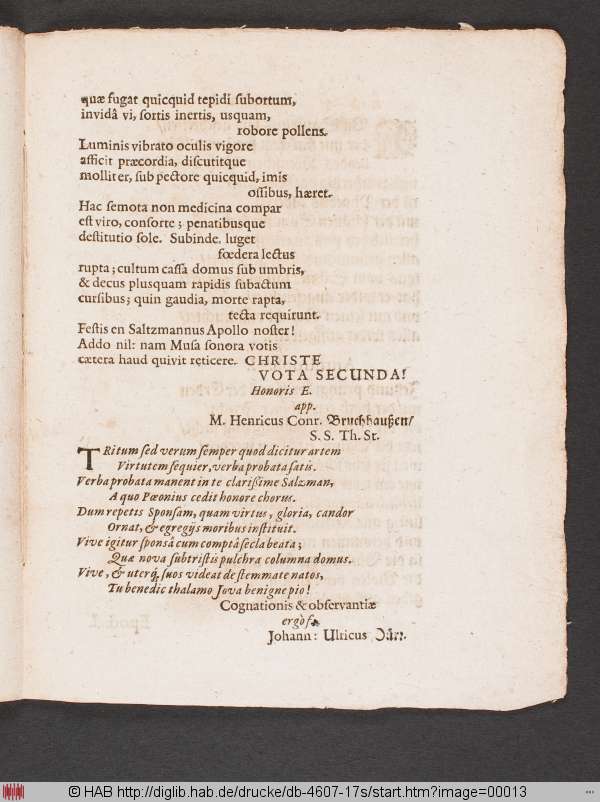 quæ fugat quicquid tepidi subortum,
invidâ vi, sortis inertis, usquam,
robore pollens.
Luminis vibrato oculis vigore
afficit præcordia, discutitque
molliter, sub pectore quicquid, imis
ossibus, hæret.
Hac semota non medicina compar
est viro, consorte; penatibusque
destitutio sole. Subinde. luget
fœdera lectus
rupta; cultum cassa domus sub umbris,
& decus plusquam rapidis subactum
cursibus; quin gaudia, morte rapta,
tecta requirunt.
Festis en Saltzmannus Apollo noster!
Addo nil: nam Musa sonora votis
cætera haud quivit reticere. CHRISTE
VOTA SECUNDA!
Honoris E.
app.
M. Henricus Conr. Bruchhaußen/
S. S. Th. St.
TRitum sed verum semper quod dicitur artem
Virtutem sequier, verba probata satis.
Verba probata manent in te clarißime Salzman,
A quo Pæonius cedit honore chorus.
Dum repetis Sponsam, quam virtus, gloria, candor
Ornat, & egregijs moribus instituit.
Vive igitur sponsâ cum comptâ secla beata;
Quæ nova subtristis pulchra columna domus.
Vive, & uterq; suos videat de stemmate natos,
Tu benedic thalamo Jova benigne pio!
Cognationis & observantiæ
ergò f.
Johann: Ulricus Dürr.
© HAB http://diglib.hab.de/drucke/db-4607-17s/start.htm?image=00013